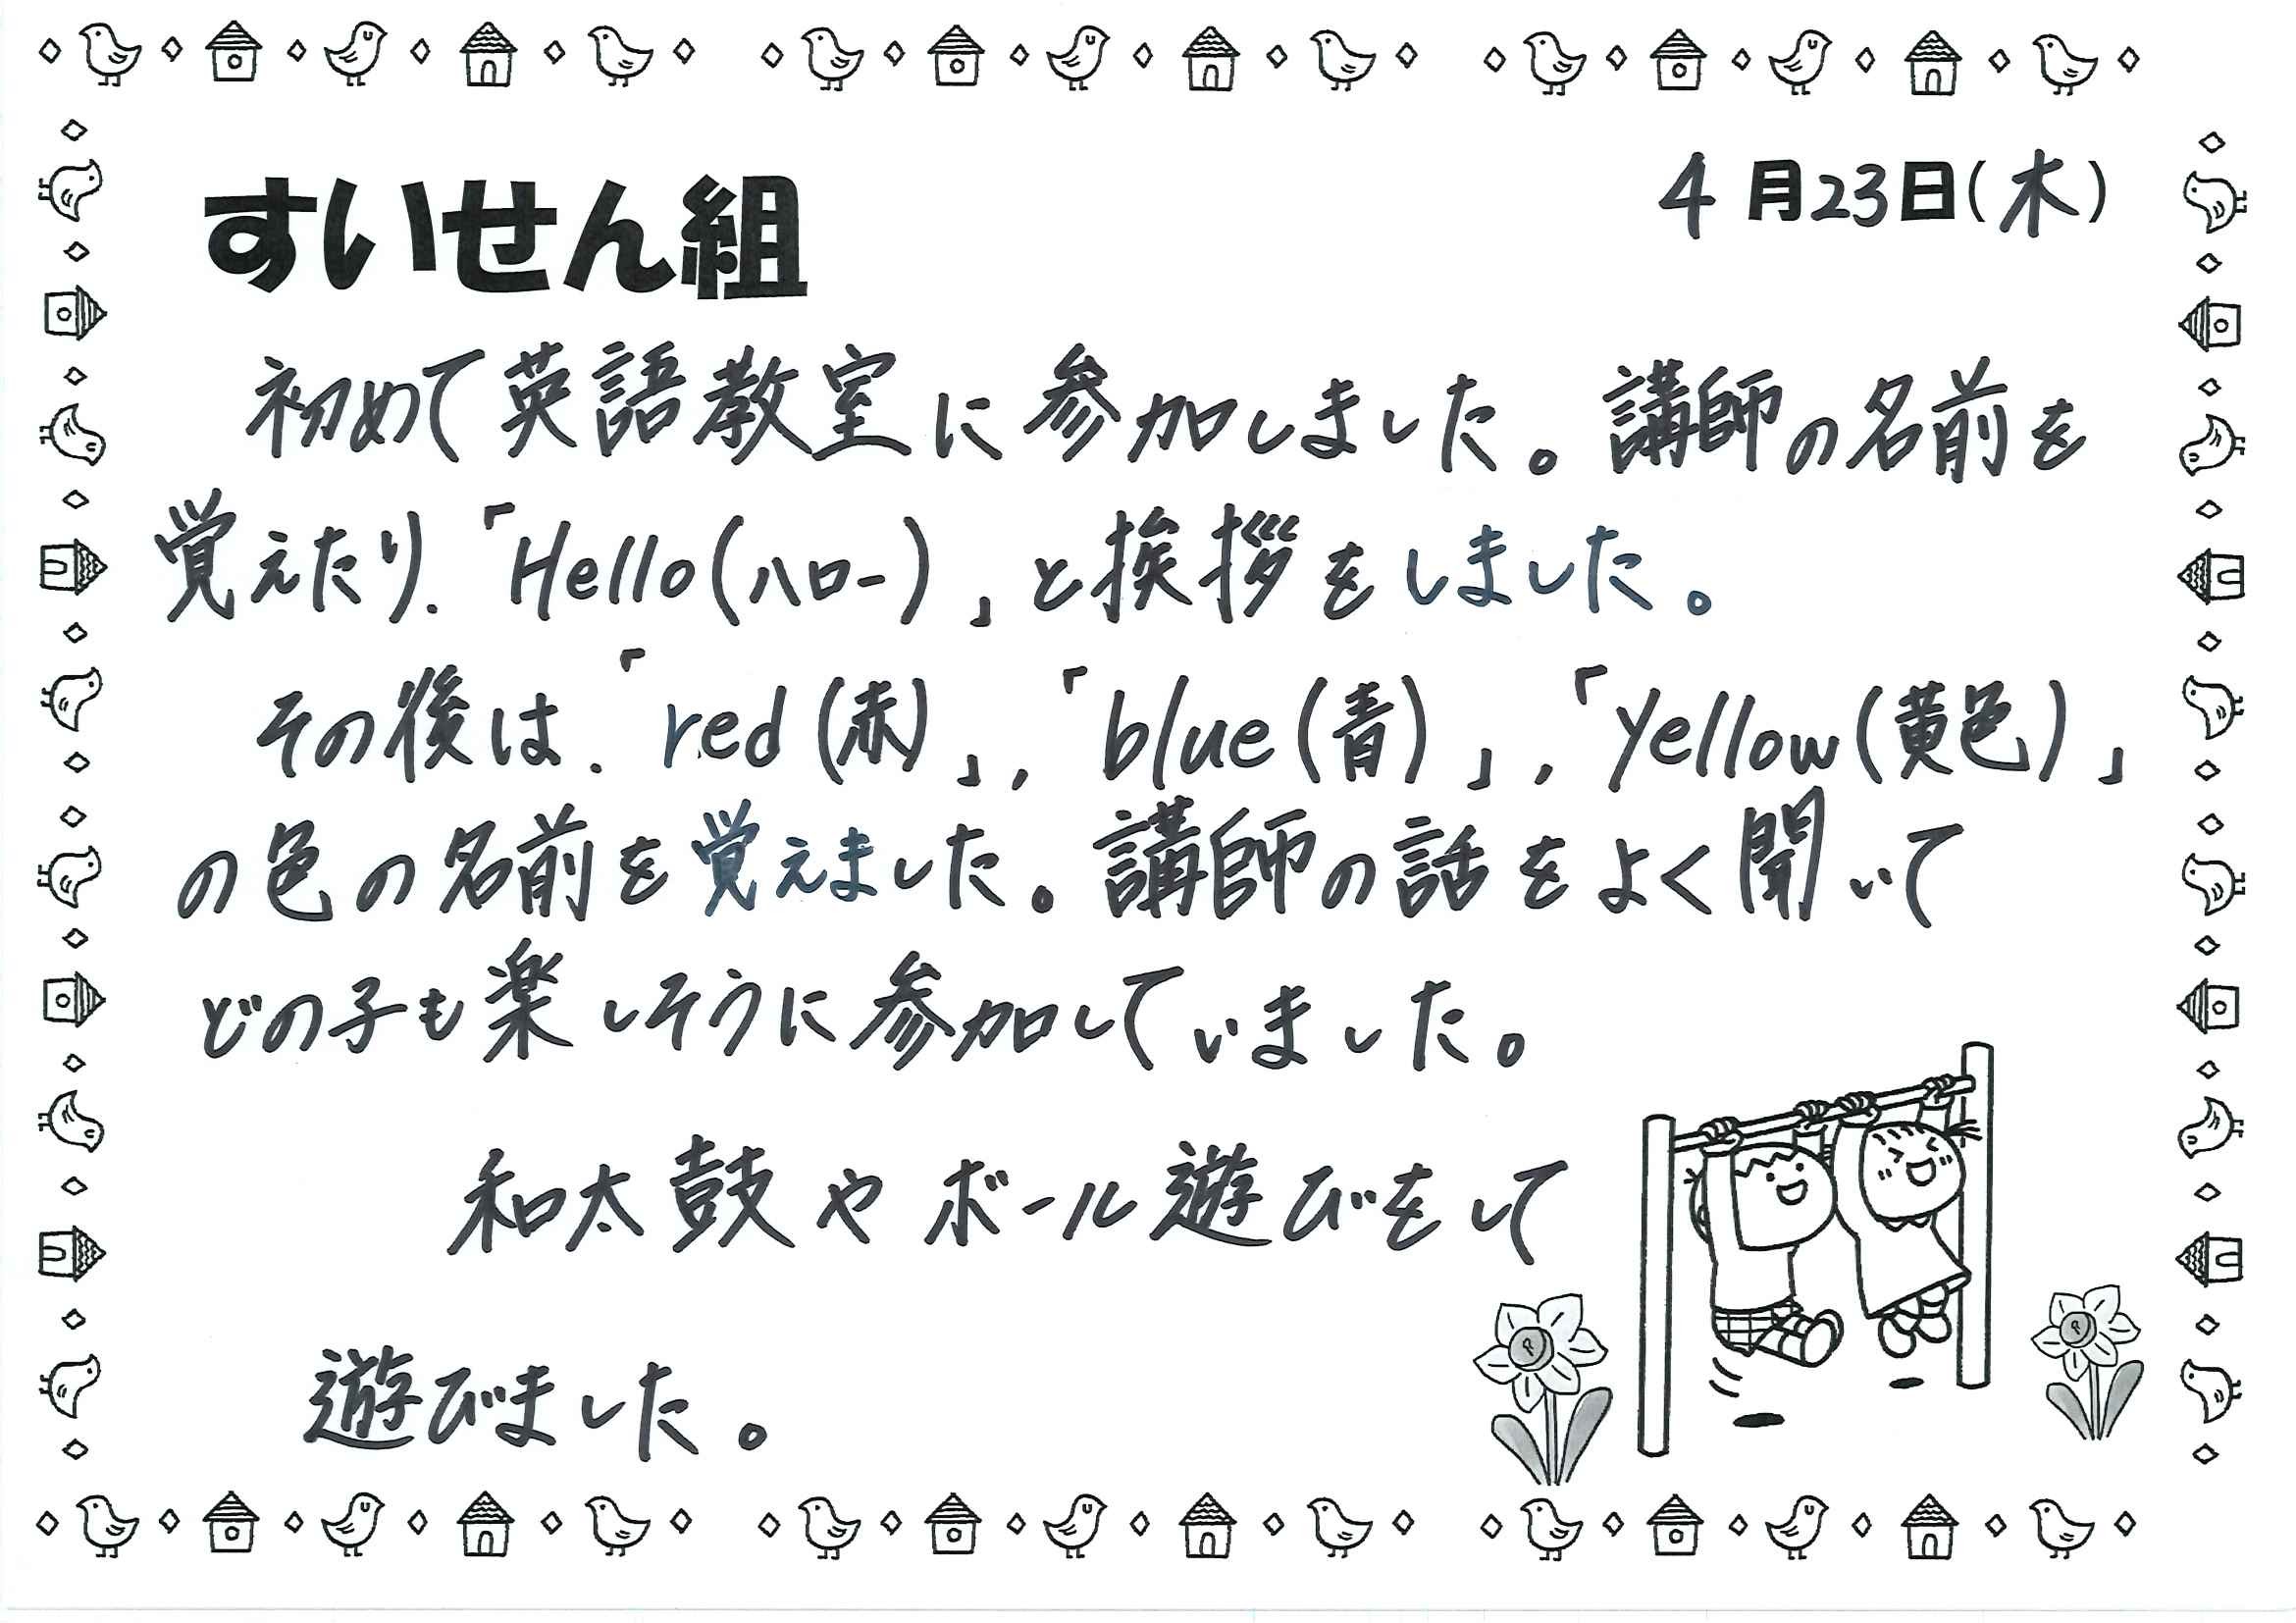 すいせん組
4月23日(木)
初めて英語教室に参加しました。講師の名前を
覚えたり、「Hello(ハロー)」と挨拶をしました。
その後は、「red(赤)」、「blue(青)」、「yellow(黄色)」
の色の名前を覚えました。講師の話をよく聞いて
どの子も楽しそうに参加していました。
和太鼓やボール遊びをして
遊びました。